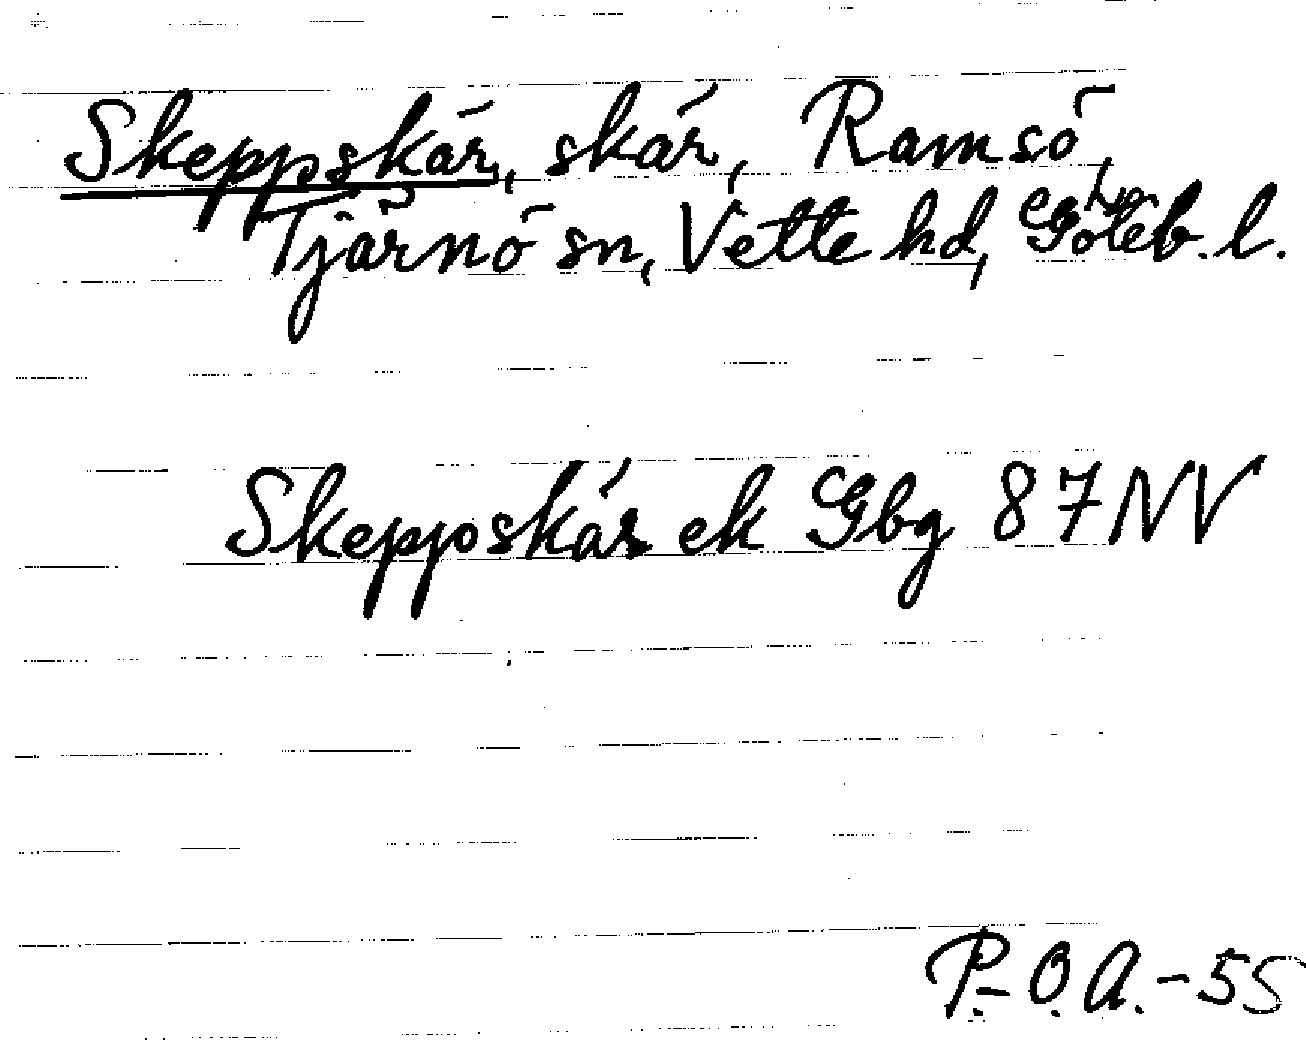 Skeppskär, skär, Ramsö,
Tjärnö sn, Vette hd, Göteb. l.
Skeppskär ek Gbg 87 NV
P.-O. A. -55